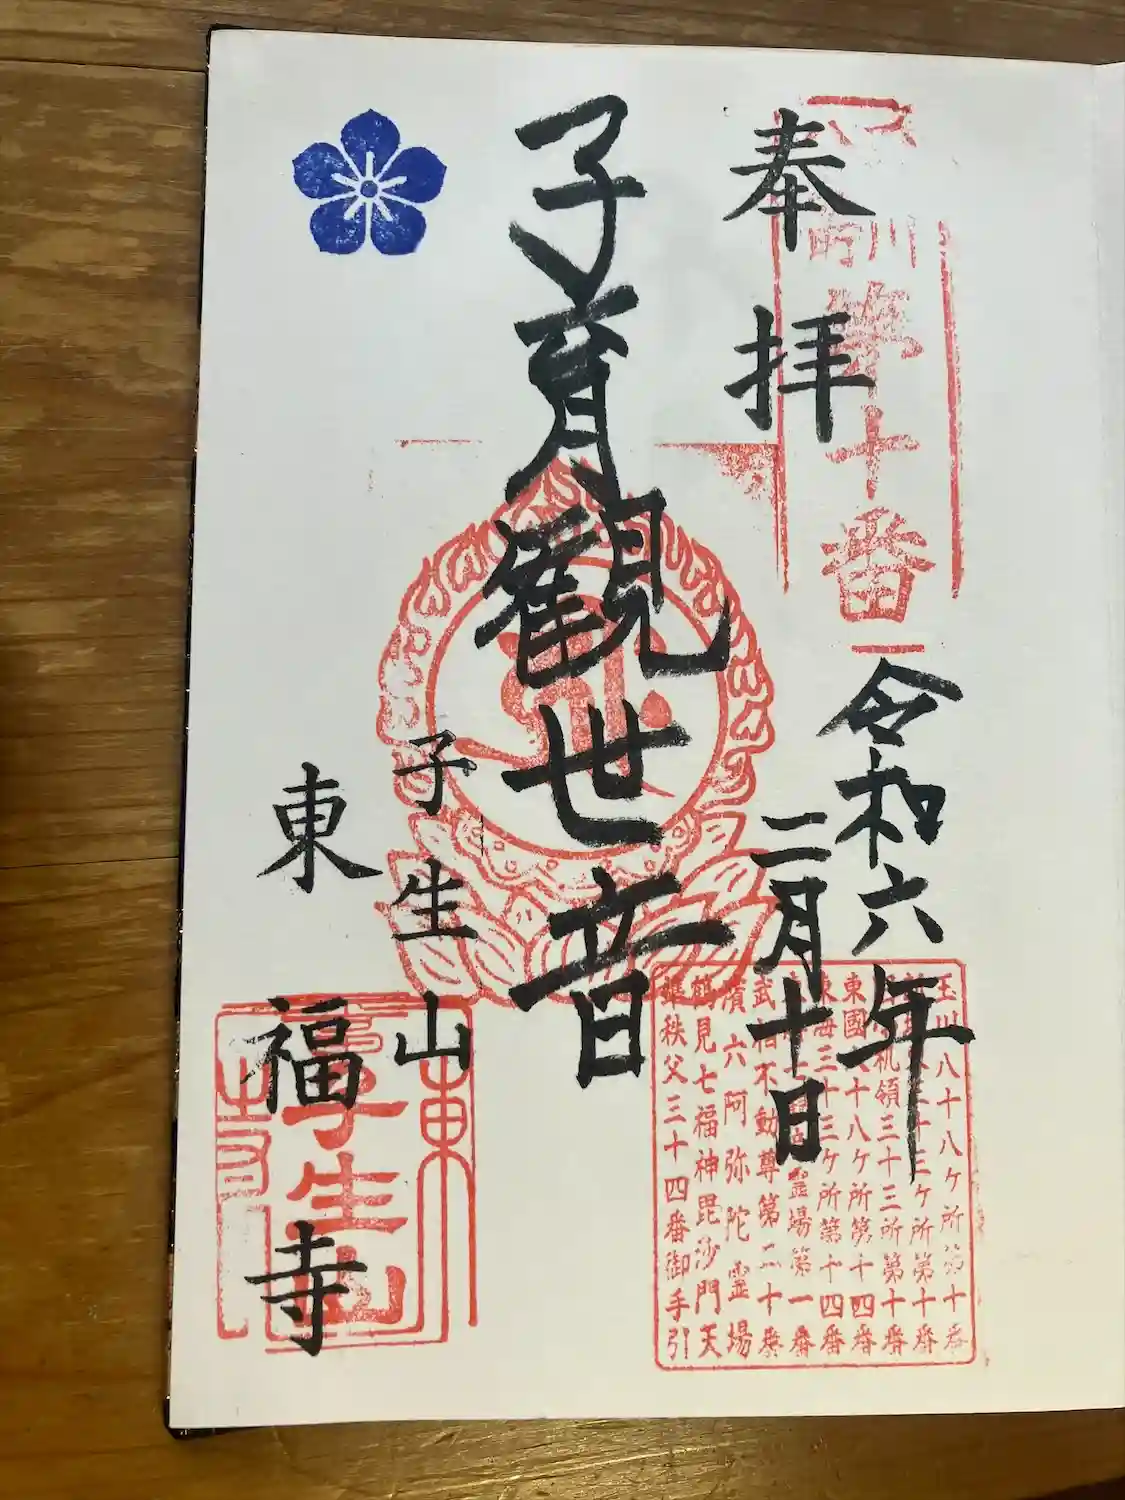 奉拝
第十番
令和六年
二月十日
子育觀世音
子生山
東福寺
玉川八十八ケ所第十番
三十三ケ所第十番
准机領三十三所第十番
東國八十八ケ所第十四番
東海三十三ケ所第十四番
霊場第一番
武相不動尊第二十番
濱六阿弥陀霊場
鶴見七福神毘沙門天
準秩父三十四番御手引